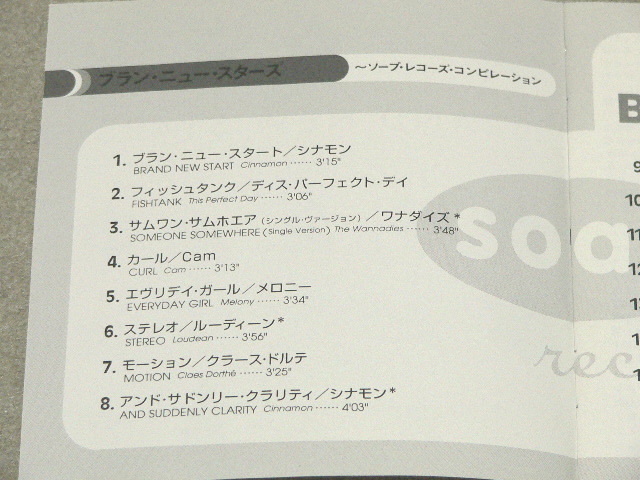 ブラン・ニュー・スターズ
～ソープ・レコーズ・コンピレーション
1. ブラン・ニュー・スタート／シナモン
BRAND NEW START Cinnamon ······ 3'15"
2. フィッシュタンク／ディス・パーフェクト・デイ
FISHTANK This Perfect Day ······ 3'06"
3. サムワン・サムホエア（シングル・ヴァージョン）／ワナダイズ*
SOMEONE SOMEWHERE (Single Version) The Wannadies ······ 3'48"
4. カール／Cam
CURL Cam ······ 3'13"
5. エヴリデイ・ガール／メロニー
EVERYDAY GIRL Melony ······ 3'34"
6. ステレオ／ルーディーン*
STEREO Loudean ······ 3'56"
7. モーション／クラース・ドルテ
MOTION Claes Dorthé ······ 3'25"
8. アンド・サドンリー・クラリティ／シナモン*
AND SUDDENLY CLARITY Cinnamon ······ 4'03"
soa
rec
B
9
10
11
12
13